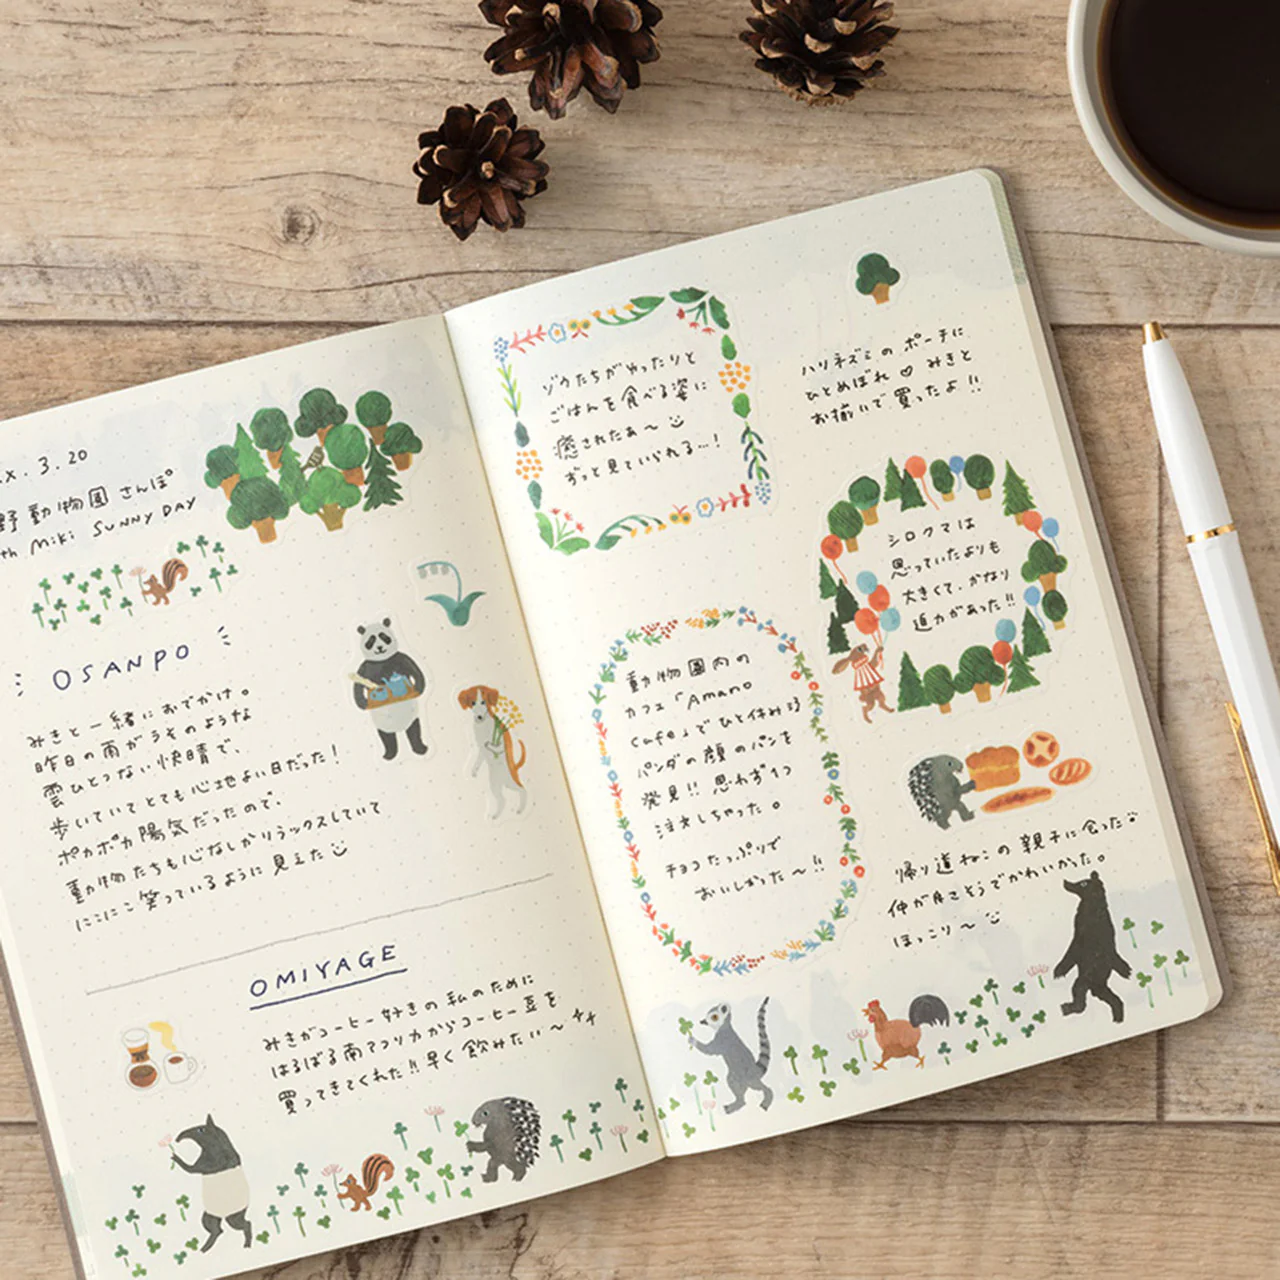 x.3.20
野動物園さんぽ
th Miki SUNNY DAY
OSANPO
みきと一緒におでかけ。
昨日の雨がうそのような
雲ひとつない快晴で、
歩いていてとても心地よい日だった!
ポカポカ陽気だったので、
動物たちも心なしかリラックスしていて
にこにこ笑っているように見えた
OMIYAGE
みきがコーヒー好きの私のために
はるばる南アフリカからコーヒー豆を
買ってきてくれた!!早く飲みたい〜
ゾウたちがゆったりと
ごはんを食べる姿に
癒されたぁ〜
ずっと見ていられる…!
動物園内の
カフェ「Amano
Cafe」でひと休み
パンダの顔のパンを
発見!!思わず1つ
注文しちゃった。
チョコたっぷりで
おいしかった〜!!
ハリネズミのポーチに
ひとめぼれ♡みきと
お揃いで買ったよ!!
シロクマは
思っていたよりも
大きくて、かなり
迫力があった!!
帰り道ねこの親子に会った
仲が良さそうでかわいかった。
ほっこり〜